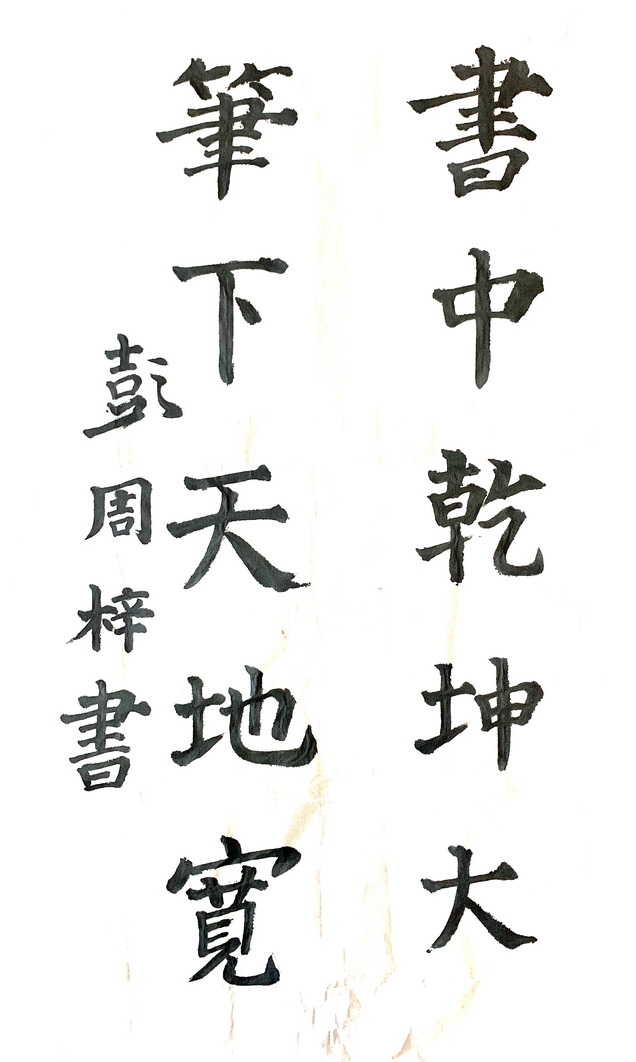 書中乾坤大
筆下天地寬
彭周梓書